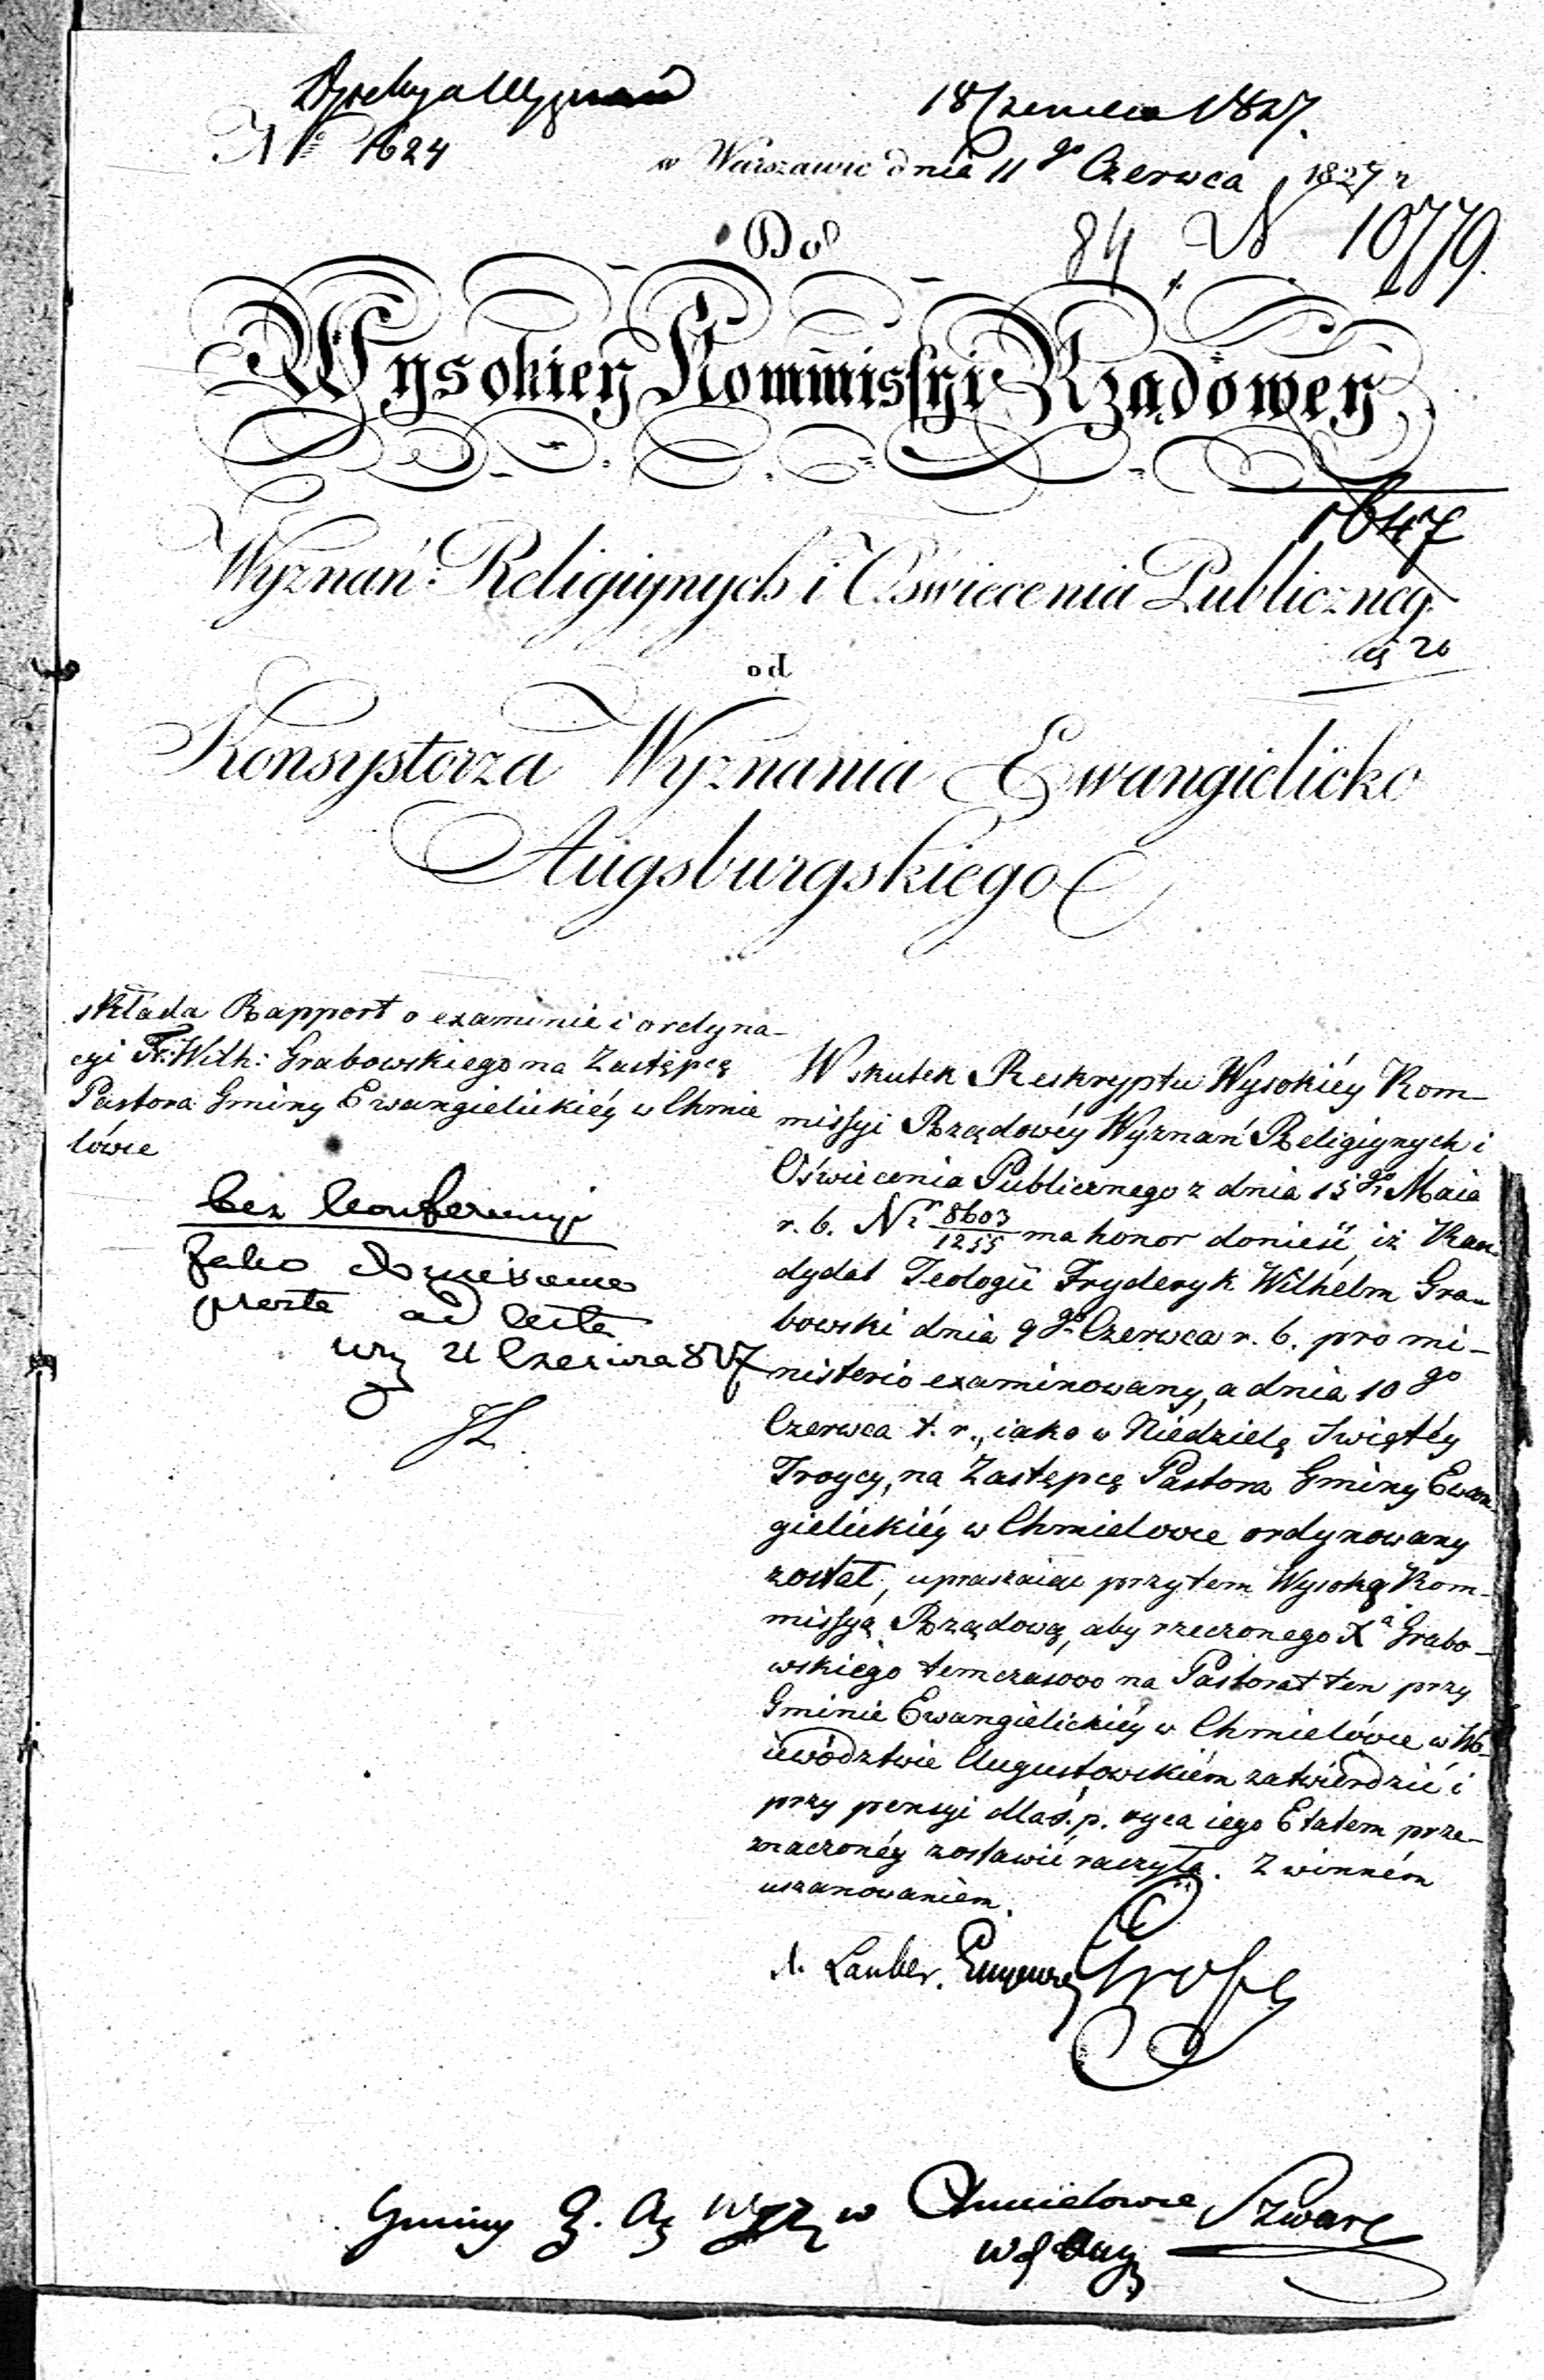 Dyrekcya Wyznań
18 Czerwca 1827.
Nr 1624
w Warszawie dnia 11go Czerwca 1827 r
84 N 10779.
Do
Wysokiey Kommissyi Rządowey
1647
Wyznań Religiynych i Oświecenia Publiczneg.
20
od
Konsystorza Wyznania Ewangielicko
Augsburgskiego
składa Rapport o examinie i ordyna-
cyi Fr: Wilh: Grabowskiego na Zastępcę
Pastora Gminy Ewangielickiéy w Chmie
lówie
bez konferencyi
Jako doniesienie
ad acta
21 Czerwca 827
JL
W skutek Reskryptu Wysokiéy Kom-
missyi Rządowéy Wyznań Religiynych i
Oświecenia Publicznego z dnia 15go Maia
r. b. Nr 8603/1255 ma honor donieść, iż Kan-
dydat Teologii Fryderyk Wilhelm Gra-
bowski dnia 9go Czerwca r. b. pro mi-
nisterio examinowany, a dnia 10go
Czerwca t. r., iako w Niedzielę Swiętéy
Troycy, na Zastępcę Pastora Gminy Ewan-
gielickiéy w Chmielowie ordynowany
został, upraszaiąc przytem Wysoką Kom-
missyą Rządową, aby rzeczonego Xa Grabo-
wskiego temczasowo na Pastorat ten przy
Gminie Ewangielickiéy w Chmielówie w Wo-
iewództwie Augustowskiém zatwierdzić i
przy pensyi dla ś. p. oyca iego Etatem prze-
znaczonéy zostawić raczyła. Z winném
uszanowaniem.
Lauber.
Gminy E. A. w Chmielowie Szwarc
W. Aug